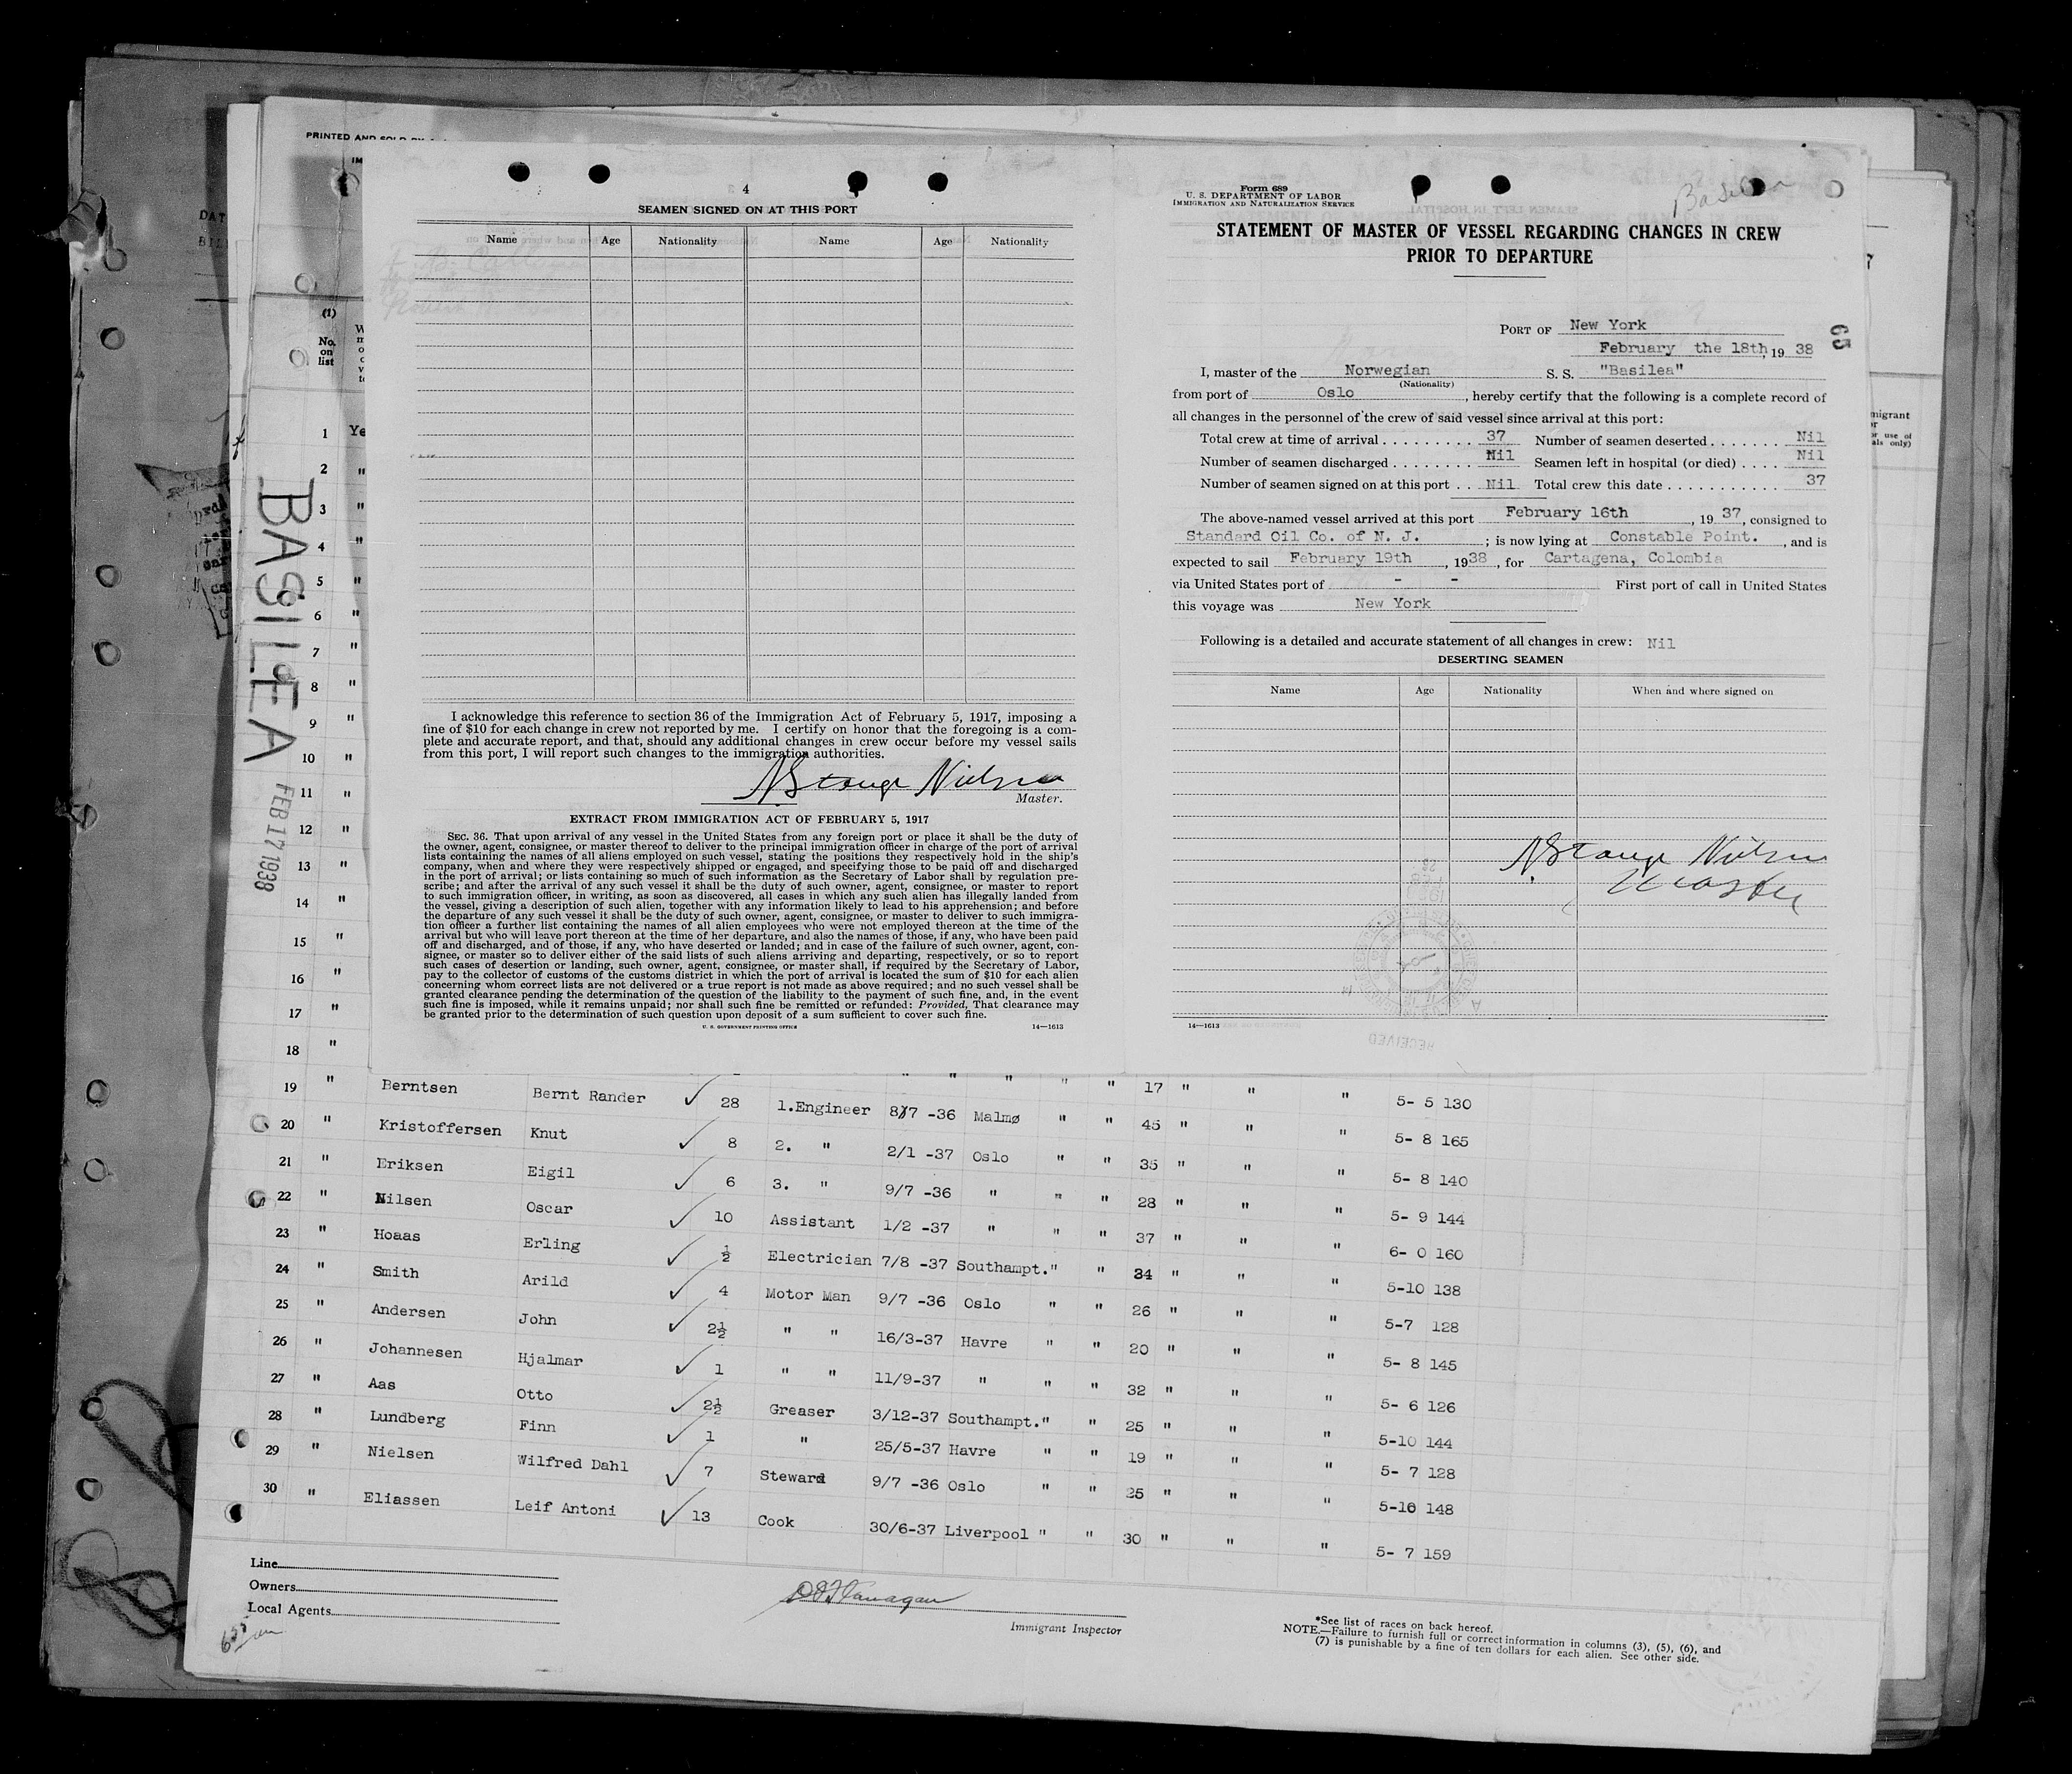 PRINTED AND SOLD BY
4
SEAMEN SIGNED ON AT THIS PORT
Name Age Nationality Name Age Nationality
I acknowledge this reference to section 36 of the Immigration Act of February 5, 1917, imposing a
fine of $10 for each change in crew not reported by me. I certify on honor that the foregoing is a com-
plete and accurate report, and that, should any additional changes in crew occur before my vessel sails
from this port, I will report such changes to the immigration authorities.
N Stange Nielsen
Master.
EXTRACT FROM IMMIGRATION ACT OF FEBRUARY 5, 1917
SEC. 36. That upon arrival of any vessel in the United States from any foreign port or place it shall be the duty of
the owner, agent, consignee, or master thereof to deliver to the principal immigration officer in charge of the port of arrival
lists containing the names of all aliens employed on such vessel, stating the positions they respectively hold in the ship's
company, when and where they were respectively shipped or engaged, and specifying those to be paid off and discharged
in the port of arrival; or lists containing so much of such information as the Secretary of Labor shall by regulation pre-
scribe; and after the arrival of any such vessel it shall be the duty of such owner, agent, consignee, or master to report
to such immigration officer, in writing, as soon as discovered, all cases in which any such alien has illegally landed from
the vessel, giving a description of such alien, together with any information likely to lead to his apprehension; and before
the departure of any such vessel it shall be the duty of such owner, agent, consignee, or master to deliver to such immigra-
tion officer a further list containing the names of all alien employees who were not employed thereon at the time of the
arrival but who will leave port thereon at the time of her departure, and also the names of those, if any, who have been paid
off and discharged, and of those, if any, who have deserted or landed; and in case of the failure of such owner, agent, con-
signee, or master so to deliver either of the said lists of such aliens arriving and departing, respectively, or so to report
such cases of desertion or landing, such owner, agent, consignee, or master shall, if required by the Secretary of Labor,
pay to the collector of customs of the customs district in which the port of arrival is located the sum of $10 for each alien
concerning whom correct lists are not delivered or a true report is not made as above required; and no such vessel shall be
granted clearance pending the determination of the question of the liability to the payment of such fine, and, in the event
such fine is imposed, while it remains unpaid; nor shall such fine be remitted or refunded: Provided, That clearance may
be granted prior to the determination of such question upon deposit of a sum sufficient to cover such fine.
U. S. GOVERNMENT PRINTING OFFICE 14—1613
Form 689
U. S. DEPARTMENT OF LABOR
IMMIGRATION AND NATURALIZATION SERVICE
Basilea
STATEMENT OF MASTER OF VESSEL REGARDING CHANGES IN CREW
PRIOR TO DEPARTURE
PORT OF New York
February the 18th, 19 38
65
I, master of the Norwegian S. S. "Basilea"
(Nationality)
from port of Oslo, hereby certify that the following is a complete record of
all changes in the personnel of the crew of said vessel since arrival at this port:
Total crew at time of arrival . . . . . . . . . 37 Number of seamen deserted . . . . . . . Nil
Number of seamen discharged . . . . . . . . Nil Seamen left in hospital (or died) . . . . Nil
Number of seamen signed on at this port . . Nil Total crew this date . . . . . . . . . . . 37
The above-named vessel arrived at this port February 16th, 19 37, consigned to
Standard Oil Co. of N. J. ; is now lying at Constable Point. , and is
expected to sail February 19th, 1938, for Cartagena, Colombia
via United States port of - - First port of call in United States
this voyage was New York
Following is a detailed and accurate statement of all changes in crew: Nil
DESERTING SEAMEN
Name Age Nationality When and where signed on
N Stange Nielsen
Master
14—1613
RECEIVED
BASILEA
FEB 17 1938
(1)
No.
on
list
1 Ye
2 "
3 "
4 "
5 "
6 "
7 "
8 "
9 "
10 "
11 "
12 "
13 "
14 "
15 "
16 "
17 "
18 "
19 " Berntsen Bernt Rander 28 1.Engineer 8/7 -36 Malmø " " 45 " " " 5- 8 165
20 " Kristoffersen Knut 8 2. " 2/1 -37 Oslo " " 35 " " " 5- 8 140
21 " Eriksen Eigil 6 3. " 9/7 -36 " " " 28 " " " 5- 9 144
22 " Nilsen Oscar 10 Assistant 1/2 -37 " " " 37 " " " 6- 0 160
23 " Hoaas Erling ½ Electrician 7/8 -37 Southampt." " 34 " " " 5-10 138
24 " Smith Arild 4 Motor Man 9/7 -36 Oslo " " 26 " " " 5-7 128
25 " Andersen John 2½ " " 16/3-37 Havre " " 20 " " " 5- 8 145
26 " Johannesen Hjalmar 1 " " 11/9-37 " " " 32 " " " 5- 6 126
27 " Aas Otto 2½ Greaser 3/12-37 Southampt." " 25 " " " 5-10 144
28 " Lundberg Finn 1 " 25/5-37 Havre " " 19 " " " 5- 7 128
29 " Nielsen Wilfred Dahl 7 Steward 9/7 -36 Oslo " " 25 " " " 5-10 148
30 " Eliassen Leif Antoni 13 Cook 30/6-37 Liverpool " " 30 " " " 5- 7 159
" " " " " 17 " " " 5- 5 130
Line
Owners
Local Agents
Flanagan
Immigrant Inspector
*See list of races on back hereof.
NOTE.—Failure to furnish full or correct information in columns (3), (5), (6), and
(7) is punishable by a fine of ten dollars for each alien. See other side.